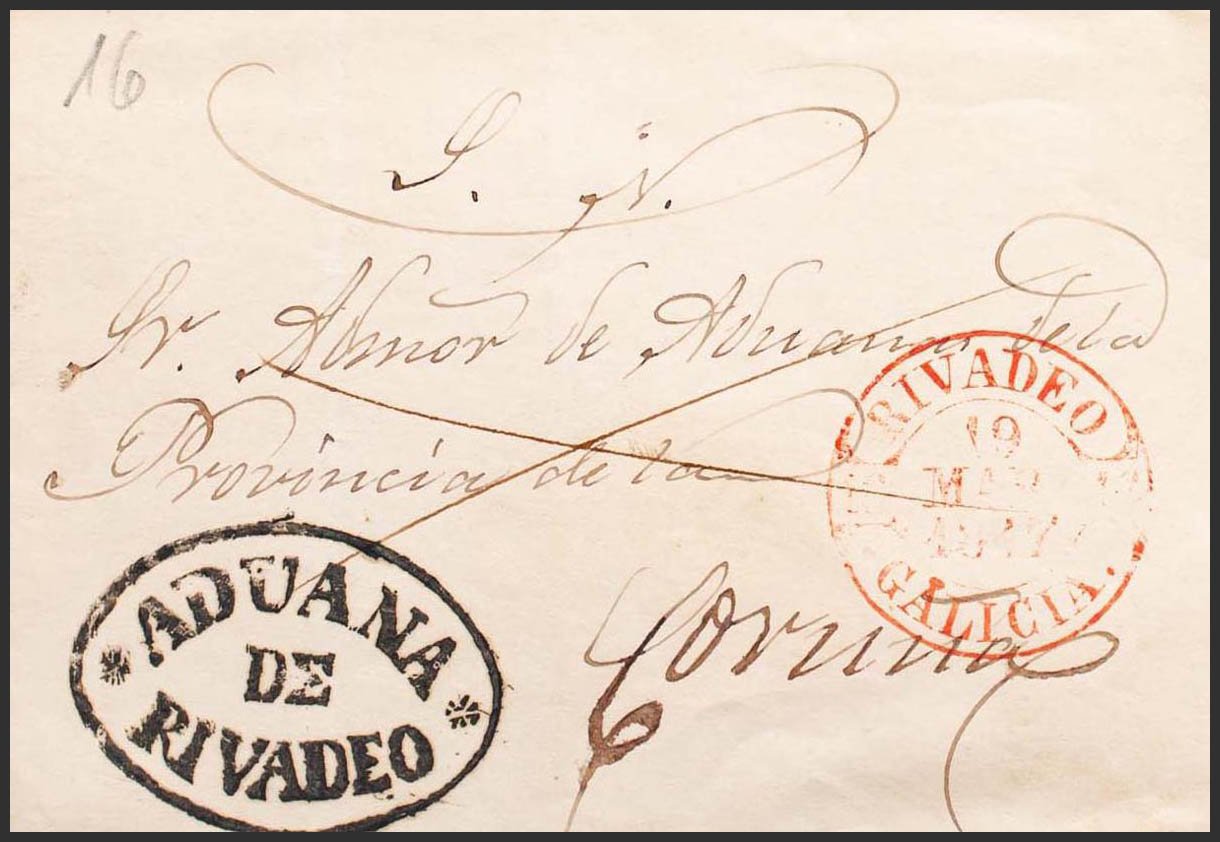 16
S. N.
Sr. Admor de Aduana de la
Provincia de la
Coruña
RIVADEO
19
MAR
GALICIA.
ADUANA
DE
RIVADEO